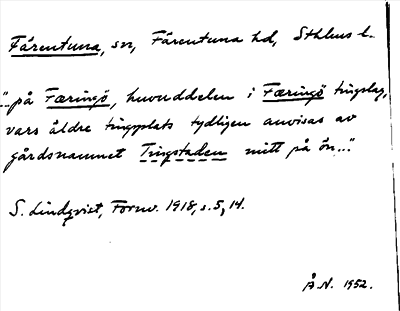 Färentuna, sn, Färentuna hd, Sthlms l.
"..på Færingö, huvuddelen i Færingö tingslag,
vars äldre tingsplats tydligen anvisas av
gårdsnamnet Tingstaden mitt på ön..."
S. Lindqvist, Fornv. 1918, s. 5, 14.
Å.N. 1952.